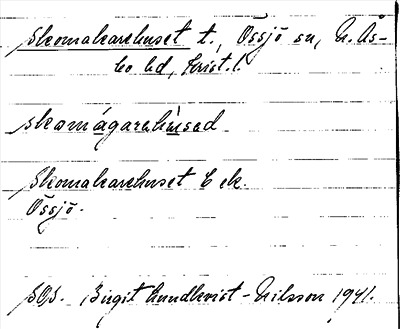 Skomakarehuset t., Össjö sn, N. Ås-
bo hd, Krist. l.
skomágarehùsed
Skomakarehuset E ek.
Össjö.
SOS. Birgit Lundkvist-Nilsson 1941.